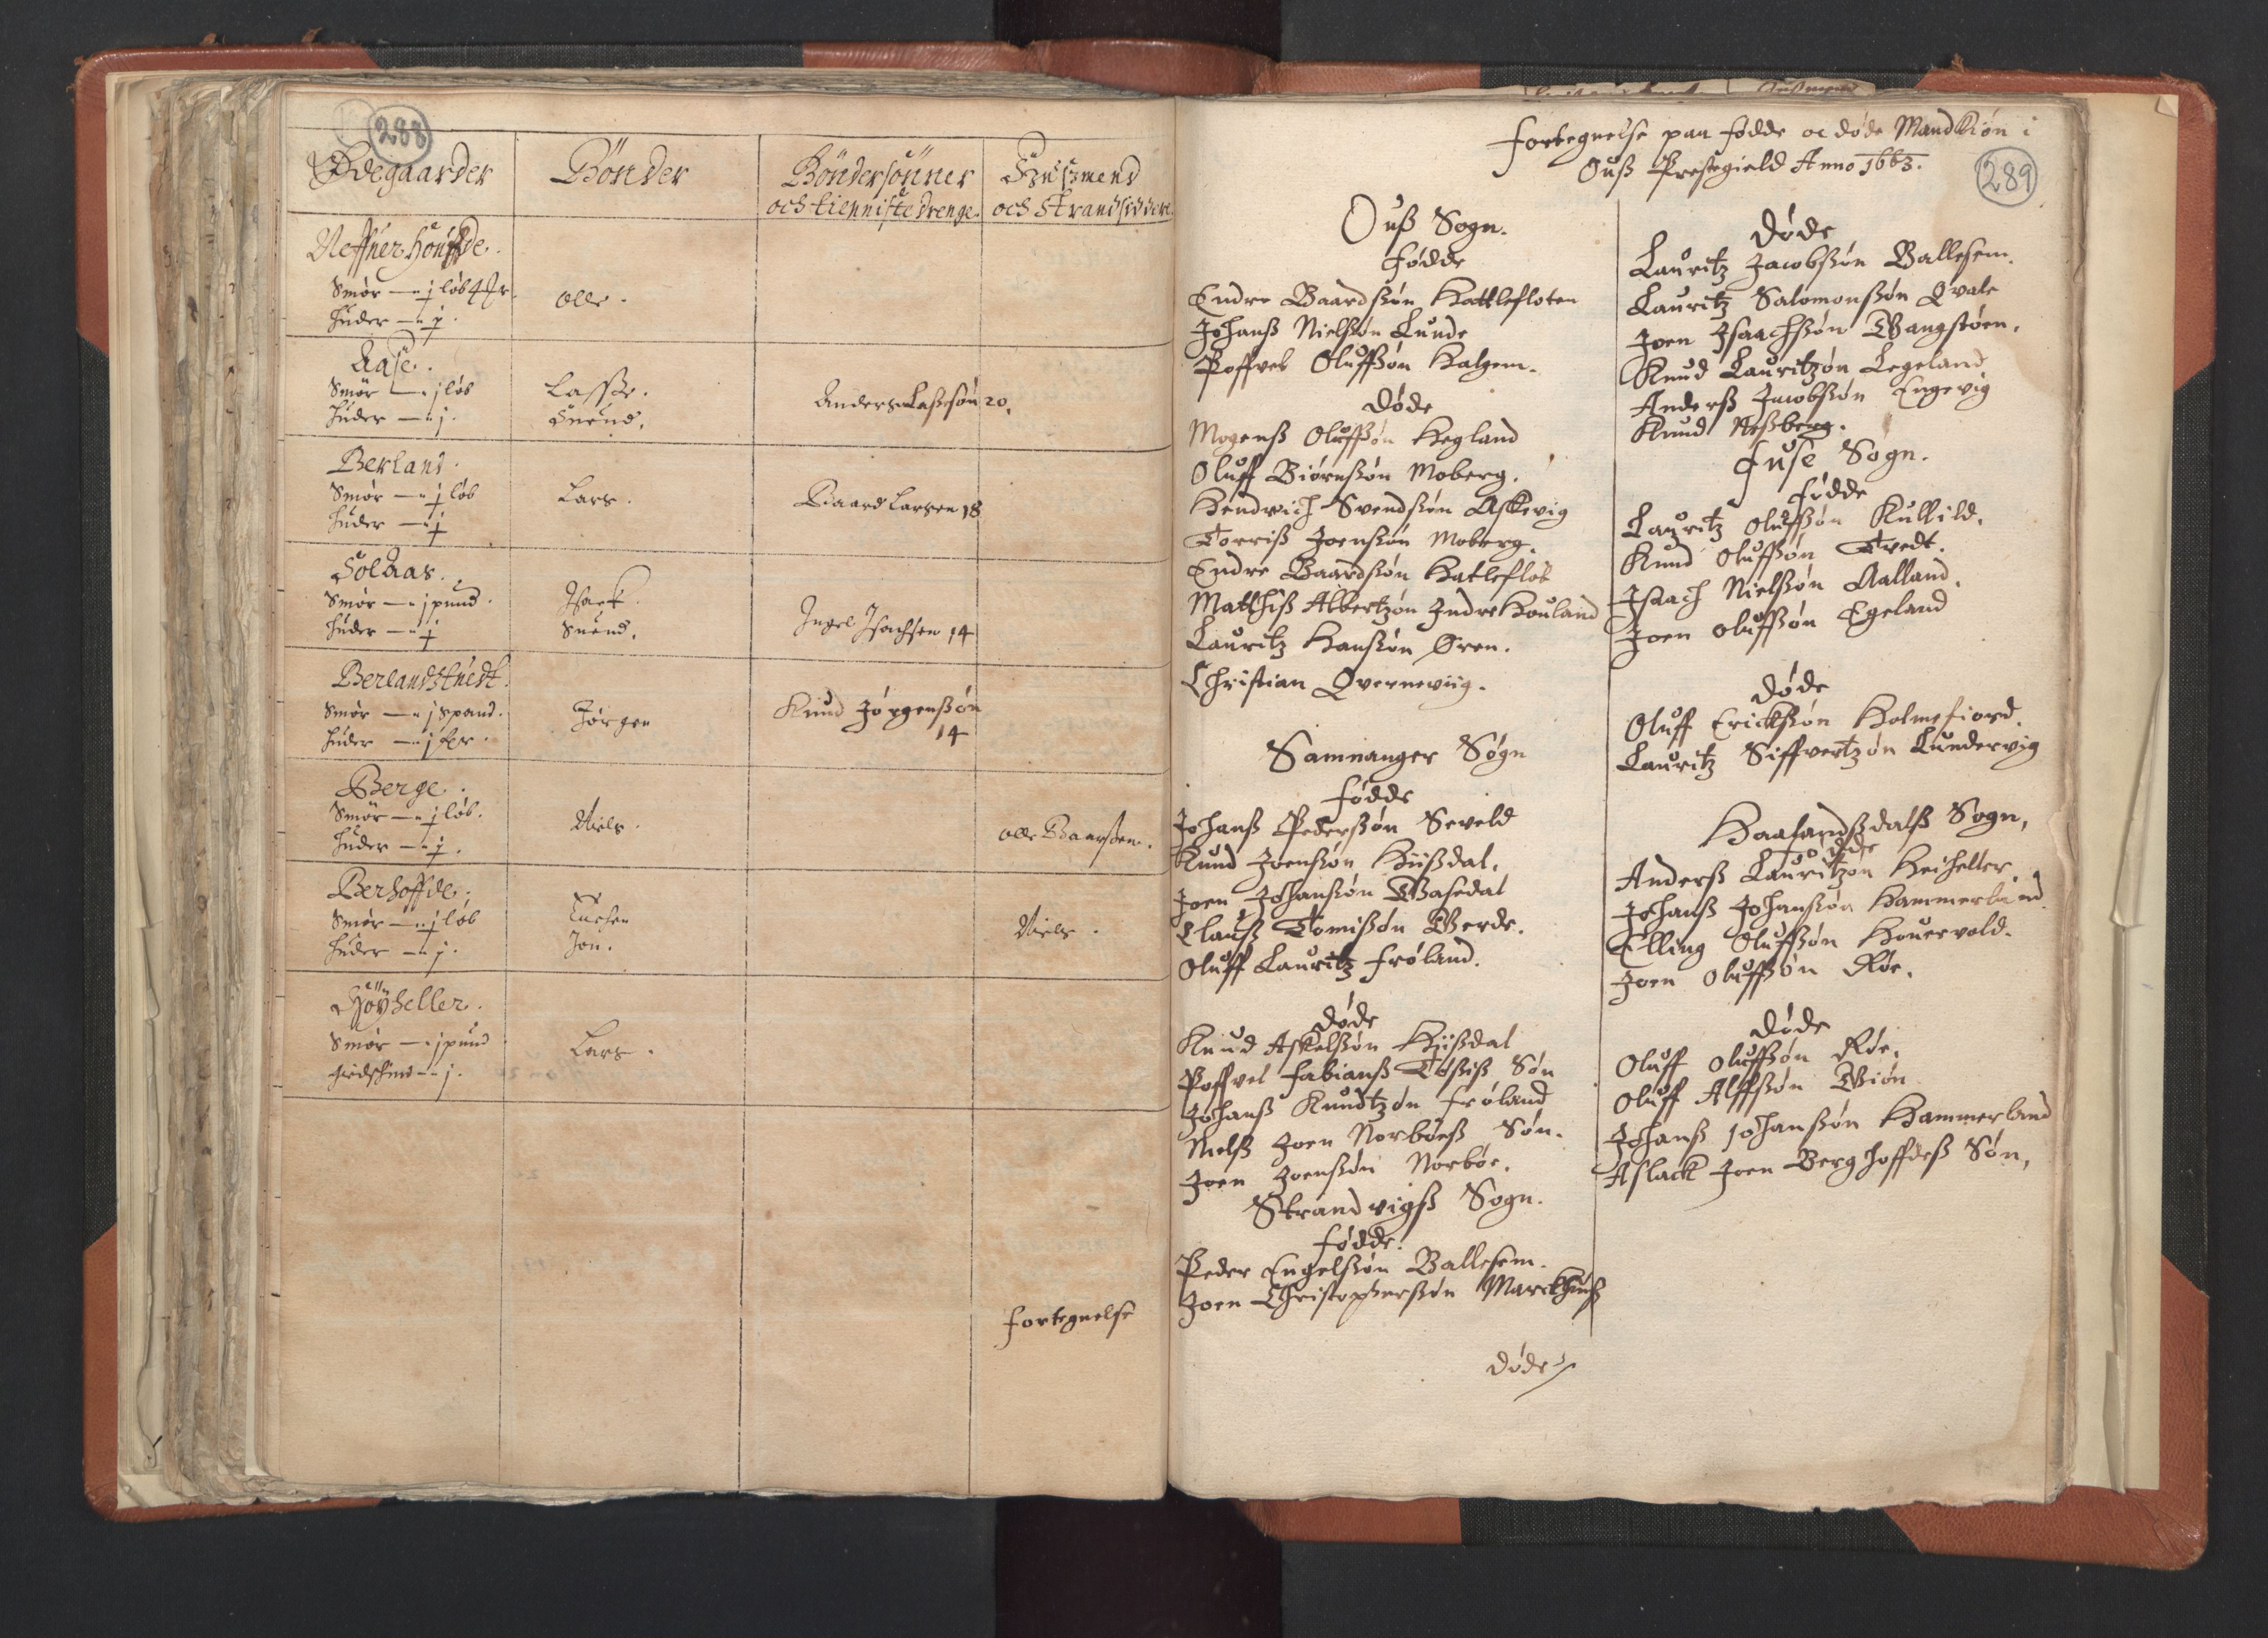 288
Ödegaarder
Bönder
Böndersönner
och tienniste drenge.
Huusmend
och Strandsiddere
Neffner Höufde.
Smör — j løb
huder — j.
Olle.
Aase.
Smör — j løb
huder — j.
Lasse.
Suend.
Anders Lassesøn 20.
Berland.
Smör — j løb
huder — j
Lars.
Baard Larsen 18
Solaas.
Smör — j pund.
huder — j
Isack.
Suend.
Ingel Isachsen 14
Berlandstuedt.
Smör — j spand.
huder — j
Jørgen
Knud Jørgenssøn
14
Berge.
Smör — j løb.
huder — j.
Niels.
Olle Baarsen.
Berhoffde.
Smör — j løb
huder — j.
Jon.
Niels.
Höyheller.
Smör — j pund
giedschind — j.
Lars.
fortegnelse
fortegnelse paa fødde oc døde Mandkiøn i
Ouß Prestegield Anno 1663.
289
Ouß Sogn.
Fødde
Endre Baardssøn Hattlefloten
Johanß Nielssøn Lunde
Poffvel Oluffssøn Halgem.
Døde
Mogenß Oluffssøn Hegland
Oluff Biørnssøn Moberg.
Hendrich Svendssøn Askevig
Torriß Joenssøn Moberg.
Endre Baardssøn Hatleflot
Matthiß Albertzøn Indre Houland
Lauritz Hanssøn Øren.
Christian Qverneviig.
Samnanger Søgn
Fødde
Johanß Pederssøn Seveld
Knud Joenssøn Hiißdal.
Joen Johanssøn Wasedal
Clauß Tomissøn Werde.
Oluff Lauritz Frøland.
Døde
Knud Askelssøn Hiißdal
Poffvel Fabianß Tøßiß Søn
Johanß Knudtzøn Frøland
Nielß Joen Norbøeß Søn.
Joen Joenssøn Norbøe.
Strandvigß Sogn.
Fødde.
Peder Engelssøn Ballesem.
Joen Christopherssøn Markhuuß
Døde
Døde
Lauritz Jacobssøn Ballesem.
Lauritz Salomonssøn Qvale
Joen Isaachssøn Wangstøen.
Knud Lauritzøn Legeland
Anderß Jacobssøn Engevig
Knud Neßberg.
Fuse Sogn.
Fødde
Lauritz Oluffssøn Kullild.
Knud Oluffssøn Tvedt.
Isaach Nielssøn Aalland.
Joen Oluffssøn Egeland
Døde
Oluff Erickssøn Holmefiord.
Lauritz Siffvertzøn Lundervig
Haalandßdalß Sogn,
Fødde
Anderß Lauritzøn Heiheller.
Johanß Johanssøn Hammerland.
Elling Oluffssøn Houervold.
Joen Oluffssøn Røe.
Døde
Oluff Oluffssøn Røe.
Oluff Alffssøn Wiøn
Johanß Johanssøn Hammerland
Aslack Joen Berghoffdeß Søn,